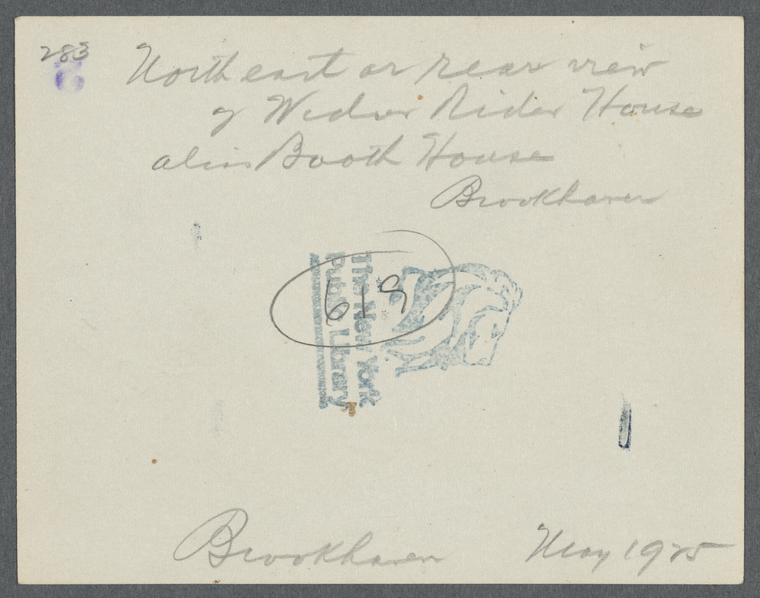 283
North east or rear view
of Widow Rider House
alias Booth House
Brookhaven
6-9
The New York
Public Library
Brookhaven May 1925